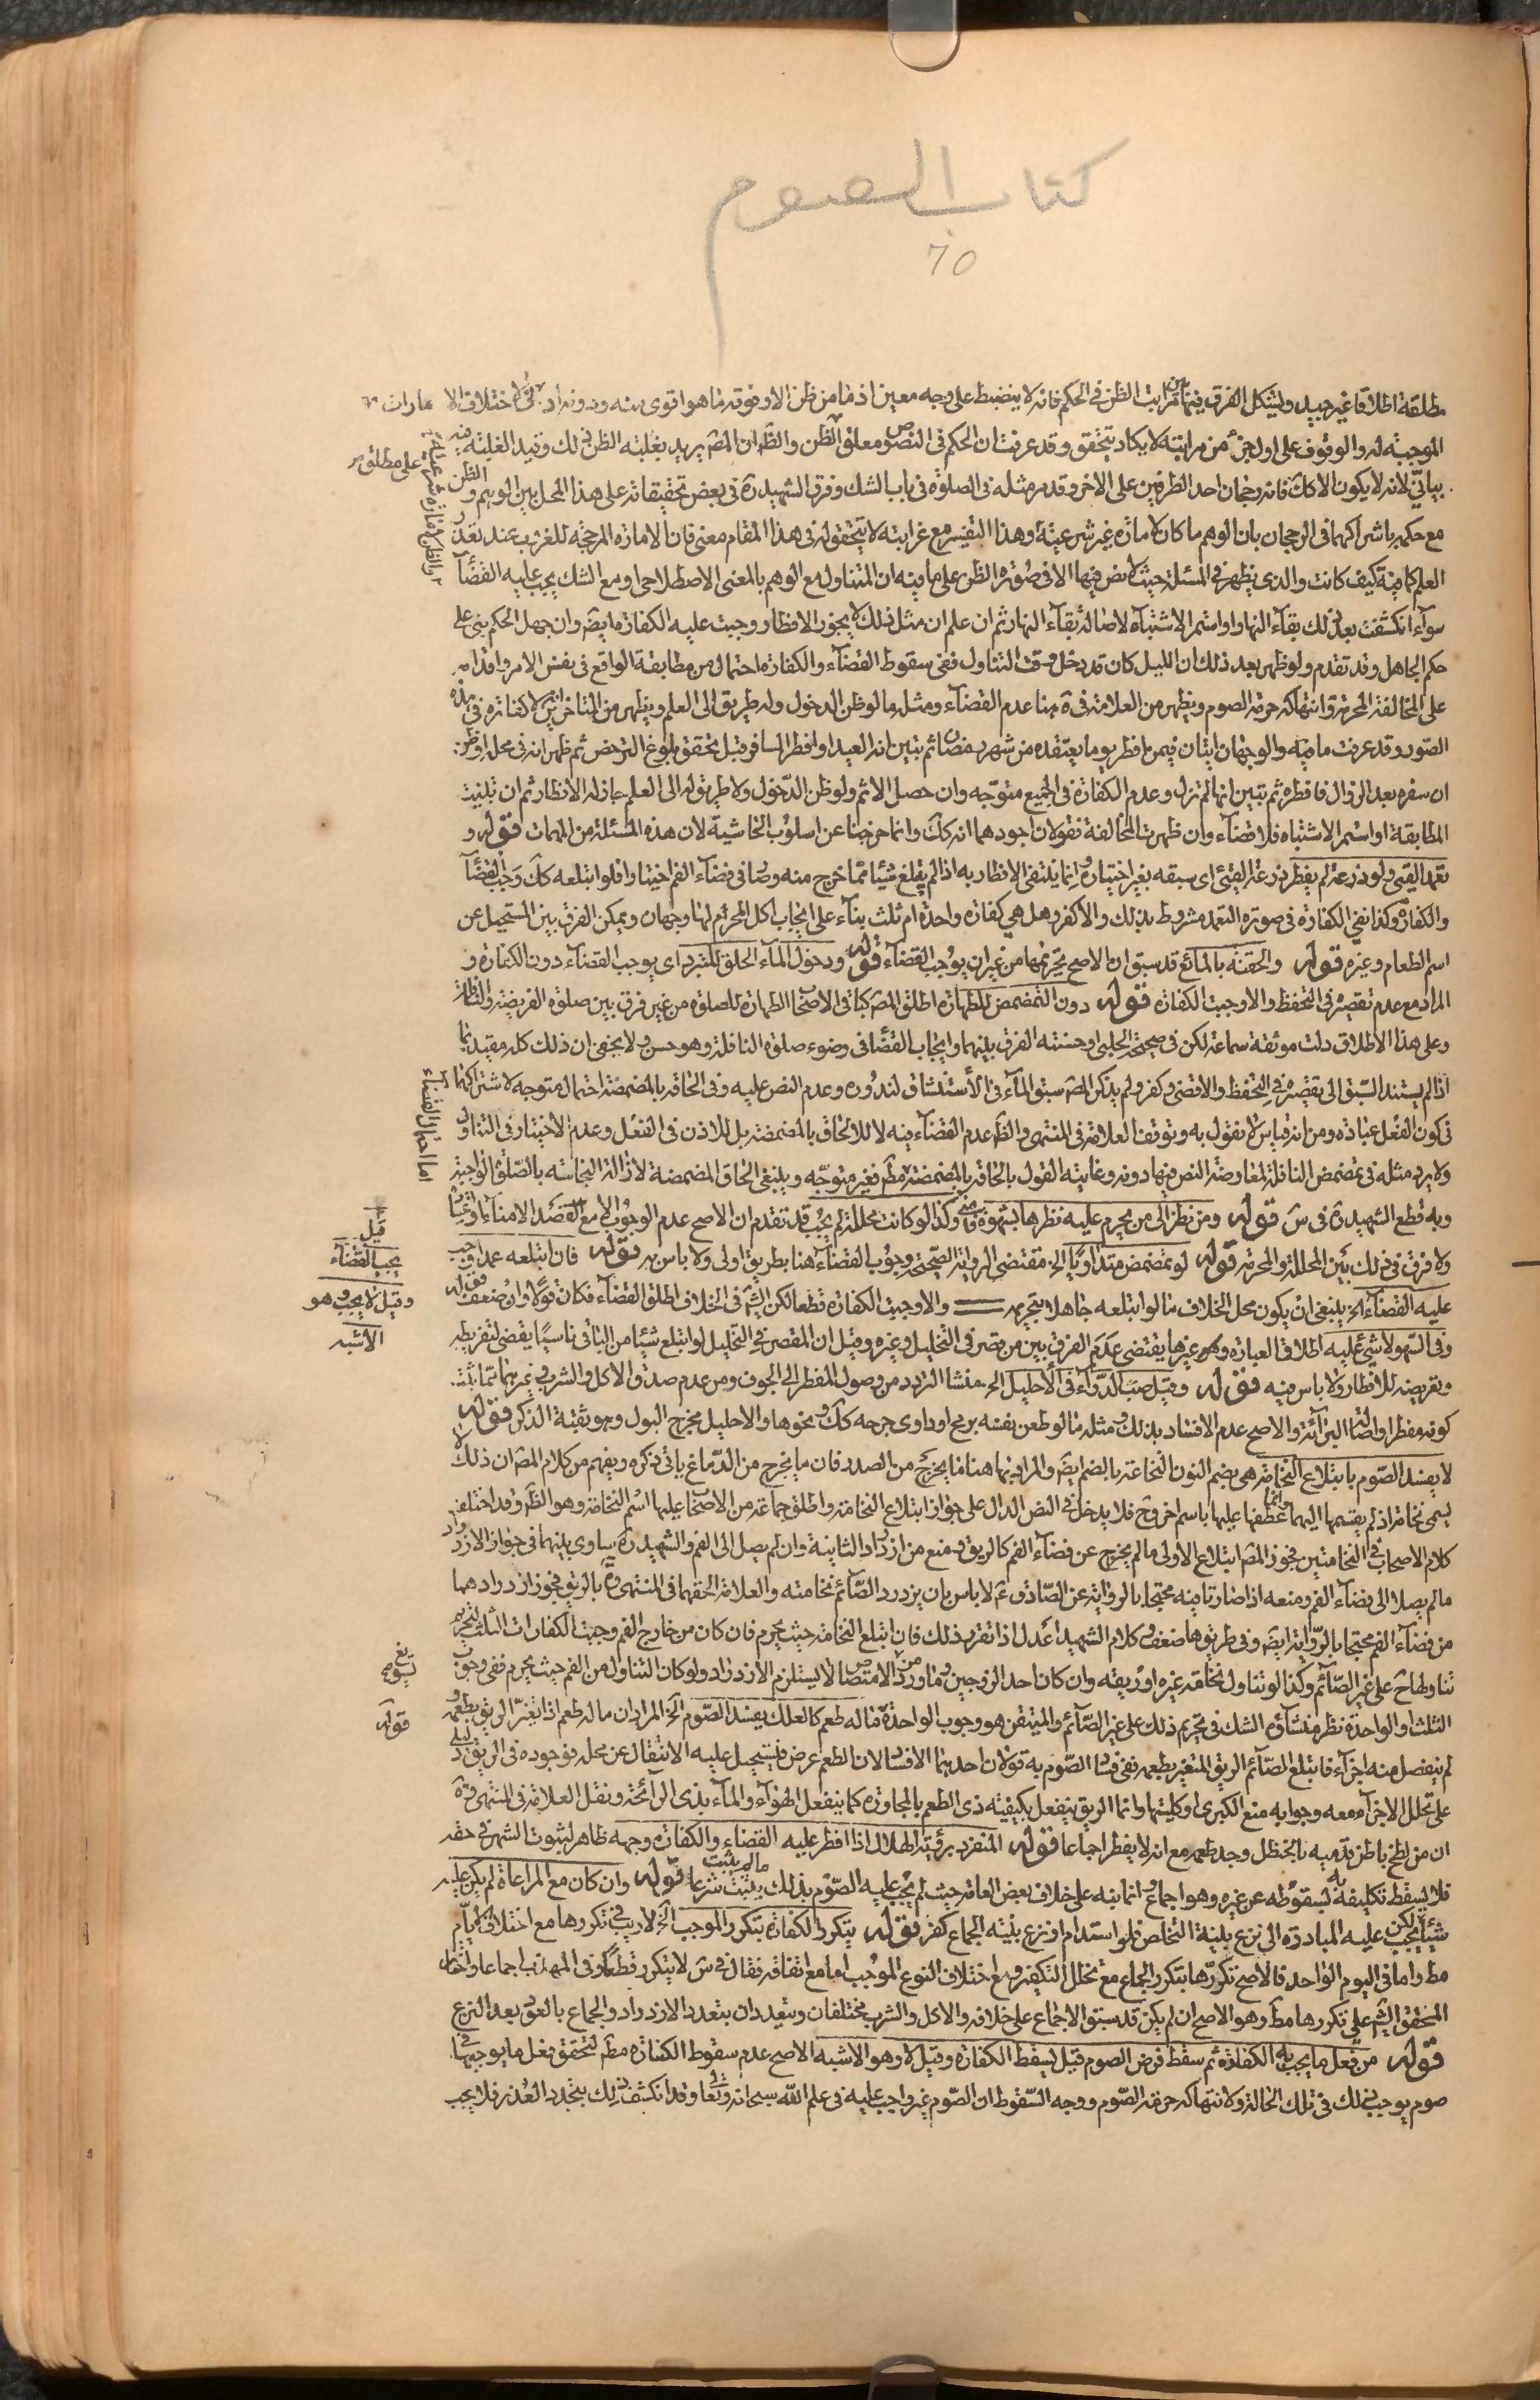 كتاب الصوم
70
مطلقة اطلاقا غير جيد ويشكل الفرق فيها بين مراتب الظن في الحكم فانه لا ينضبط على وجه معين اذ ما من ظن الا وفوقه ما هو اقوى منه ودونه اختلاف الامارات
الموجبة له والوقوف على اول جزء من مراتبه لا يكاد يتحقق وقد عرفت ان الحكم في النصوص معلق الظن والظ ان المص يريد بغلبة الظن ذلك وقيد الغلبة فيه
بياني لانه لا يكون الا كك فانه رجحان احد الطرفين على الاخر وقد مر مثله في الصلوة في باب الشك وفرق الشهيد ره في بعض تحقيقاته على هذا المحل بين الوهم و الظن
مع حكمه باشتراكهما في الرجحان بان الوهم ما كان لامارة غير شرعية وهذا التفسير مع غرابته لا يتحقق له في هذا المقام معنى فان الامارة المرجحة للغروب عند تعذر
العلم كافية كيف كانت والذي يظهر في المسئلة حيث لا نص فيها الا في صورة الظن على ما فيه ان المتناول مع الوهم بالمعنى الاصطلاحي او مع الشك يجب عليه القضآء
سوآء انكشفت بعد ذلك بقآء النهار او استمر الاشتباه لاصالة بقآء النهار ثم ان علم ان مثل ذلك لا يجوز الافطار وجبت عليه الكفارة ايضه وان جهل الحكم بنى على
حكم الجاهل وقد تقدم ولو ظهر بعد ذلك ان الليل كان قد دخل وقت التناول ففي سقوط القضآء والكفارة احتمال من مطابقة الواقع في نفس الامر واقدامه
على المخالفة المحرمة وانتهاكه حرمة الصوم ويظهر من العلامة في ه هنا عدم القضآء ومثله ما لو ظن الدخول وله طريق الى العلم ويظهر من المتاخرين ان لا كفارة في هذه
الصور وقد عرفت ما فيه والوجهان ايتان فيمن افطر يوما يعتقده من شهر رمضان ثم تبين انه العيد او افطر المسافر قبل تحقق بلوغ الترخص ثم ظهر انه في محله او ظن
ان سفره بعد الزوال فافطره ثم تبين انها لم تزل وعدم الكفارة في الجميع متوجه وان حصل الاثم ولو ظن الدخول ولا طريق له الى العلم جاز له الافطار ثم ان تبينت
المطابقة او استمر الاشتباه فلا قضآء وان ظهرت المخالفة فقولان اجودهما انه كك وانما خرجنا عن اسلوب الحاشية لان هذه المسئلة من المهمات قوله و
تعمد القيئ ولو ذرعه لم يفطر ذرعه القيئ اي سبقه بغير اختياره وانما ينتفي الافطار به اذا لم يبلع شيئا مما خرج منه وصار في فضآء الفم اختيارا فلو ابتلعه كك وجب القضآء
والكفارة وكذا نفي الكفارة في صورة التعمد مشروط بذلك والا كفر وهل هي كفارة واحدة ام ثلث بنآء على ايجاب اكل المحرم لها وجهان ويمكن الفرق بين المستحيل عن
اسم الطعام وغيره قوله والحقنة بالمائع قد سبق ان الاصح تحريمها من غير ان يوجب القضآء قوله ودخول المآء الحلق للتبرد اي يوجب القضآء دون الكفارة و
المراد مع عدم تقصيره في التحفظ والا وجبت الكفارة قوله دون التمضمض للطهارة اطلق المص كباقي الاصحاب الطهارة للصلوة من غير فرق بين صلوة الفريضة والنافلة
وعلى هذا الاطلاق دلت موثقة سماعة لكن في صحيحة الحلبي او حسنته الفرق بينهما وايجاب القضآء في وضوء صلوة النافلة وهو حسن ولا يخفى ان ذلك كله مقيد بما
اذا لم يستند السبق الى تقصيره في التحفظ والا قضى وكفر ولم يذكر المص سبق المآء في الاستنشاق لندوره وعدم النص عليه وفي الحاقه بالمضمضة احتمال متوجه لاشتراكهما
في كون الفعل عبادة ومن انه قياس لا نقول به وتوقف العلامة في المنتهى والظ عدم القضآء فيه لا للالحاق بالمضمضة بل للاذن في الفعل وعدم الاختيار في التناول
ولا يرد مثله في تمضمض النافلة لمعارضة النص فيها دونه وغايته القول بالحاقه بالمضمضة مطم فغير متوجه وينبغي الحاق المضمضة لازالة النجاسة بالصلوة الواجبة
وبه قطع الشهيد ره في س قوله ومن نظر الى من يحرم عليه نظرها بشهوة فامنى وكذا لو كانت محللة لم يجب قد تقدم ان الاصح عدم الوجوب الا مع القصد الامنآء او
ولا فرق في ذلك بين المحللة والمحرمة قوله لو تمضمض متداويا الخ مقتضى الرواية الصحيحة وجوب القضآء هنا بطريق اولى ولا باس به قوله فان ابتلعه عمدا وجب
عليه القضآء الخ ينبغي ان يكون محل الخلاف ما لو ابتلعه جاهلا بتحريمه والا وجبت الكفارة قطعا لكن الشيخ في الخلاف اطلق القضآء فكان قولا وان ضعف قوله
وفي السهو لا شيئ عليه اطلاق العبارة وغيرها يقتضي عدم الفرق بين من قصر في التخليل وغيره وقيل ان المقصر في التخليل لو ابتلع شيئا من الباقي ناسيا يقضي لتفريطه
وتعريضه للافطار ولا باس فيه قوله وقيل صب الدوآء في الاحليل الخ منشا التردد من وصول المفطر الى الجوف ومن عدم صدق الاكل والشرب وغيرهما مما ثبت
كونه مفطرا واصالة البرآئة والاصح عدم الافساد بذلك ومثله ما لو طعن نفسه برمح او داوى جرحه كك ونحوها والاحليل مخرج البول وهو ثقبة الذكر قوله
لا يفسد الصوم بابتلاع النخامة هي بضم النون النخاعة بالضم ايضه والمراد بها هنا ما يخرج من الصدر فان ما يخرج من الدماغ ياتي ذكره ويفهم من كلام المص ان ذلك لا
يسمى نخامة اذ لم يقسمها اليهما وانما عطفها عليها باسم اخر وح فلا يدخل في النص الدال على جواز ابتلاع النخامة واطلق جماعة من الاصحاب عليهما اسم النخامة وهو الظ وقد اختلف
كلام الاصحاب في النخامتين فجوز المص ابتلاع الاولى ما لم يخرج عن فضآء الفم كالريق ومنع من ازدراد الثانية وان لم يصل الى الفم والشهيد ره ساوى بينهما في جواز الازدراد
ما لم يصلا الى فضآء الفم ومنعه اذا صارتا فيه محتجا بالرواية عن الصادق ع لا باس بان يزدرد الصآئم نخامته والعلامة الحقهما في المنتهى بالريق فجوز ازدرادهما
من فضآء الفم محتجا بالرواية ايضه وفي طريقها ضعف وكلام الشهيد اعدل اذا تقرر ذلك فان ابتلع النخامة حيث يحرم فان كان من خارج الفم وجبت الكفارات الثلث لتحريم
تناولها ح على غير الصآئم وكذا لو تناول نخامة غيره او ريقه وان كان احد الزوجين وما ورد من الامتصاص لا يستلزم الازدراد ولو كان التناول من الفم حيث يحرم ففي وجوب
الثلث او الواحدة نظر منشاؤه الشك في تحريم ذلك على غير الصآئم والمتيقن هو وجوب الواحدة قوله ما له طعم كالعلك يفسد الصوم الخ المراد ان ما له طعم اذا تغير الريق بطعمه و
لم ينفصل منه اجزآء فابتلع الصآئم الريق المتغير بطعمه ففي فساد الصوم به قولان احدهما الافساد لان الطعم عرض فيستحيل عليه الانتقال عن محله فوجوده في الريق دليل
على تحلل الاجزآء معه وجوابه منع الكبرى او كليتها وانما الريق ينفعل بكيفية ذي الطعم بالمجاورة كما ينفعل الهوآء والمآء بذي الرآئحة ونقل العلامة في المنتهى
ان من لطخ باطن قدميه بالحنظل وجد طعمه مع انه لا يفطر اجماعا قوله المنفرد برؤية الهلال اذا افطر عليه القضاء والكفارة وجهه ظاهر لثبوت الشهر في حقه
فلا يسقط تكليفه به لسقوطه عن غيره وهو اجماع وانما نبه على خلاف بعض العامة حيث لم يجب عليه الصوم بذلك ما لم يثبت شرعا قوله وان كان مع المراعاة لم يكن عليه
شيئ لكن يجب عليه المبادرة الى نزع بنية التخلص فلو استدام او نزع بنية الجماع كفر قوله يتكرر الكفارة بتكرر الموجب الخ لا ريب في تكررها مع اختلاف الايام
مط واما في اليوم الواحد فالاصح تكررها بتكرر الجماع مع تخلل التكفير ومع اختلاف النوع الموجب اما مع اتفاقه فقال في س لا يتكرر قطعا وفي المهذب اجماعا واختار
المحقق الشيخ علي تكررها مطم وهو الاصح ان لم يكن قد سبق الاجماع على خلافه والاكل والشرب مختلفان ويتعددان بتعدد الازدراد والجماع بالعود بعد النزع
قوله من فعل ما يجب به الكفارة ثم سقط فرض الصوم قيل يسقط الكفارة وقيل لا وهو الاشبه الاصح عدم سقوط الكفارة مطم لتحقق فعل ما يوجبها في
صوم يوجب ذلك في تلك الحالة ولانتهاكه حرمة الصوم ووجه السقوط ان الصوم غير واجب عليه في علم الله سبحانه وتعالى وقد انكشف ذلك بتجدد العذر فلا يجب
على مطلق
قيل
يجب القضآء
وقيل لا يجب وهو
الاشبه
قوله